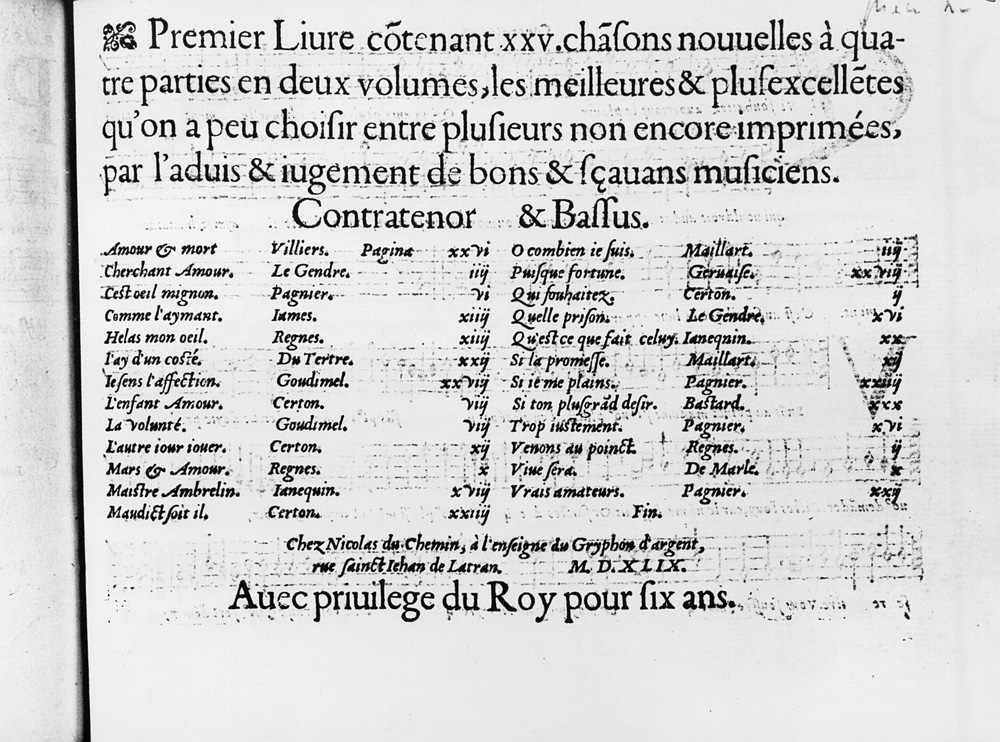 Premier Liure cõtenant xxv. chãſons nouuelles à qua-
tre parties en deux volumes, les meilleures & pluſexcellẽtes
qu'on a peu choiſir entre pluſieurs non encore imprimées,
par l'aduis & iugement de bons & ſçauans muſiciens.
Contratenor & Baſſus.
Amour & mort Villiers. Pagina xxvi
Cherchant Amour. Le Gendre. iiij
C'est oeil mignon. Pagnier. vi
Comme l'aymant. Iames. xiiij
Helas mon oeil. Regnes. xiiij
I'ay d'un coſté. Du Tertre. xxij
Ie ſens l'affection. Goudimel. xxviij
L'enfant Amour. Certon. viij
La volunté. Goudimel. viij
L'autre iour iouer. Certon. xij
Mars & Amour. Regnes. x
Maiſtre Ambrelin. Ianequin. xviij
Maudict ſoit il. Certon. xxiiij
O combien ie ſuis. Maillart. iiij
Puiſque fortune. Geruaiſe. xxviij
Qui ſouhaitez. Certon. ij
Quelle priſon. Le Gendre. xvi
Qu'est ce que fait celuy. Ianequin. xx
Si la promeſſe. Maillart. xij
Si ie me plains. Pagnier. xxiiij
Si ton pluſgrãd deſir. Baſtard. xxx
Trop iuſtement. Pagnier. xvi
Venons au poinct. Regnes. ij
Viue ſera. De Marle. x
Vrais amateurs. Pagnier. xxij
Fin.
Chez Nicolas du Chemin, à l'enſeigne du Gryphon d'argent,
rue ſainct Iehan de Latran. M. D. XLIX.
Auec priuilege du Roy pour ſix ans.